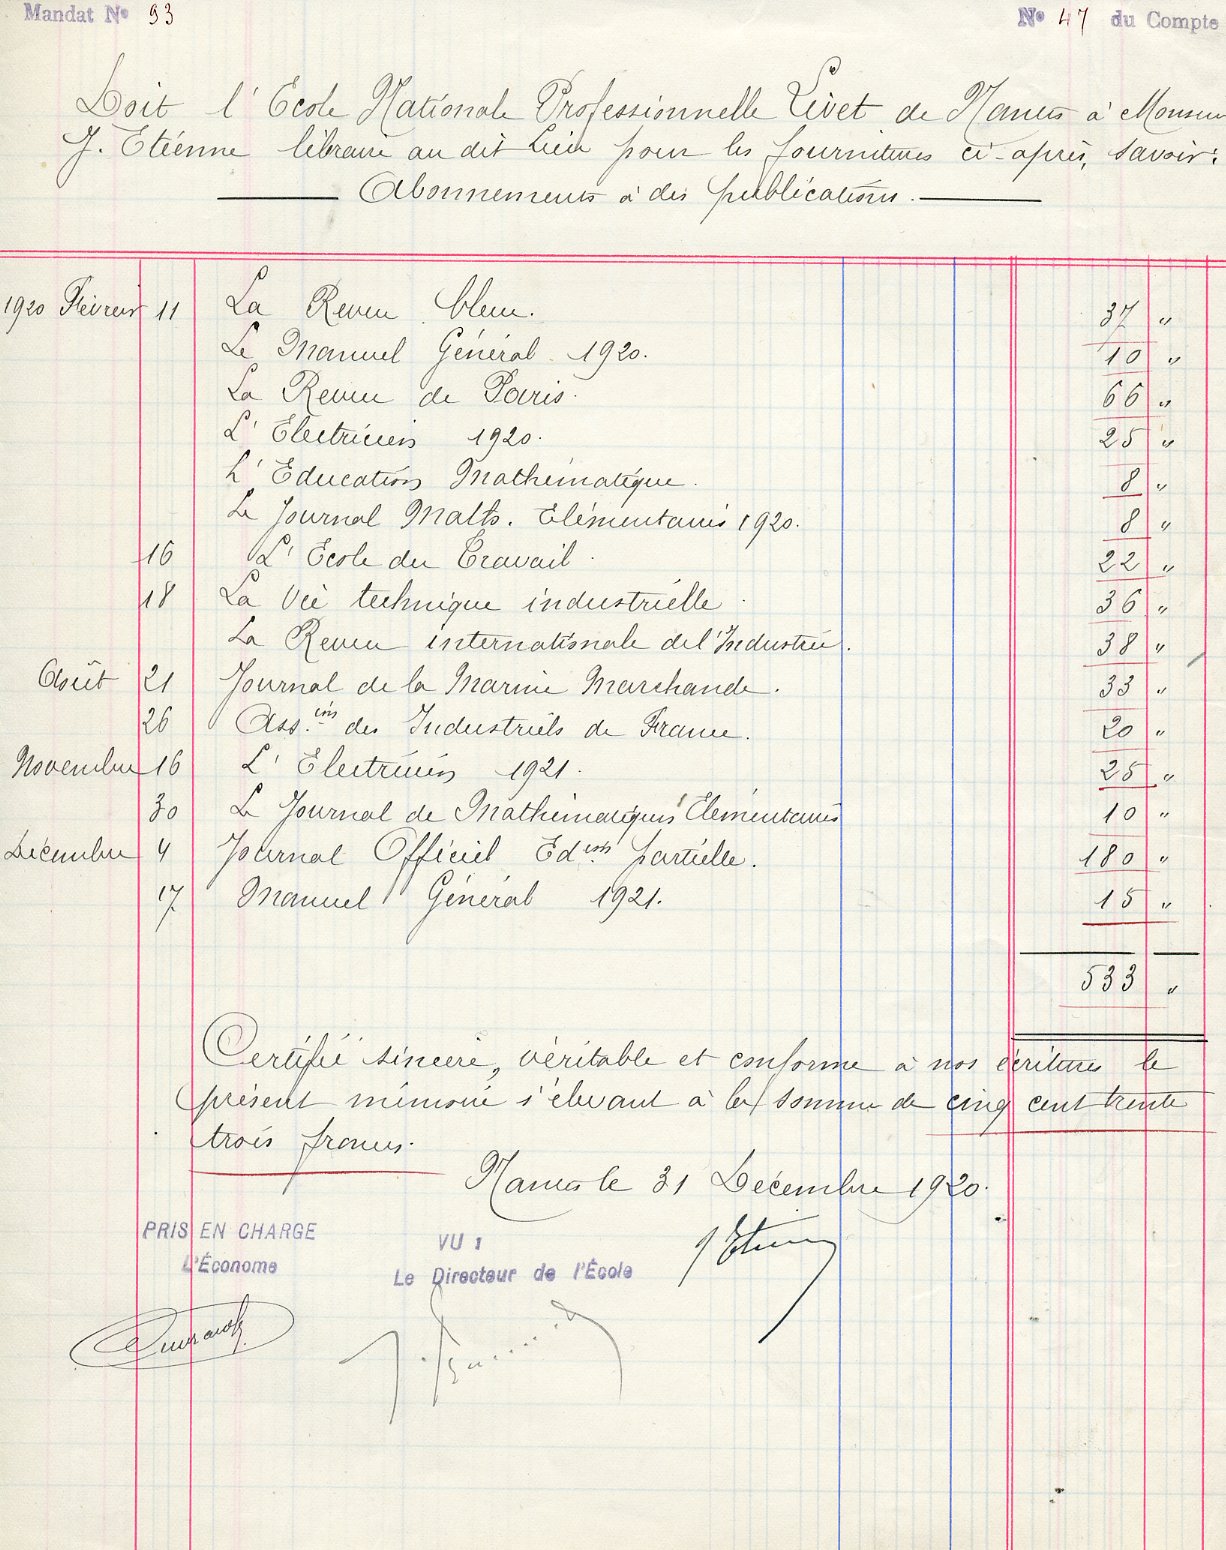 Mandat No 93
No 47 du Compte
Doit l'Ecole Nationale Professionnelle Livet de Nantes à Monsieur
J. Etienne libraire au dit Lieu pour les fournitures ci-après, savoir:
Abonnements à des publications.
1920 Février 11 La Revue bleue. 37 "
Le Manuel Général 1920. 10 "
La Revue de Paris. 66 "
L'Electricien 1920. 25 "
L'Education Mathématique. 8 "
Le Journal Math. Elémentaires 1920. 8 "
16 L'Ecole du Travail. 22 "
18 La Vie technique industrielle. 36 "
La Revue internationale de l'Industrie. 38 "
Août 21 Journal de la Marine Marchande. 33 "
26 Ass.ion des Industriels de France. 20 "
Novembre 16 L'Electricien 1921. 25 "
30 Le Journal de Mathématiques Elémentaires 10 "
Décembre 4 Journal Officiel Edion partielle. 180 "
17 Manuel Général 1921. 15 "
533 "
Certifié sincère, véritable et conforme à nos écritures le
présent mémoire s'élevant à la somme de cinq cent trente
trois francs.
Nantes le 31 Décembre 1920.
PRIS EN CHARGE
L'Économe
VU :
Le Directeur de l'École
J Etienne